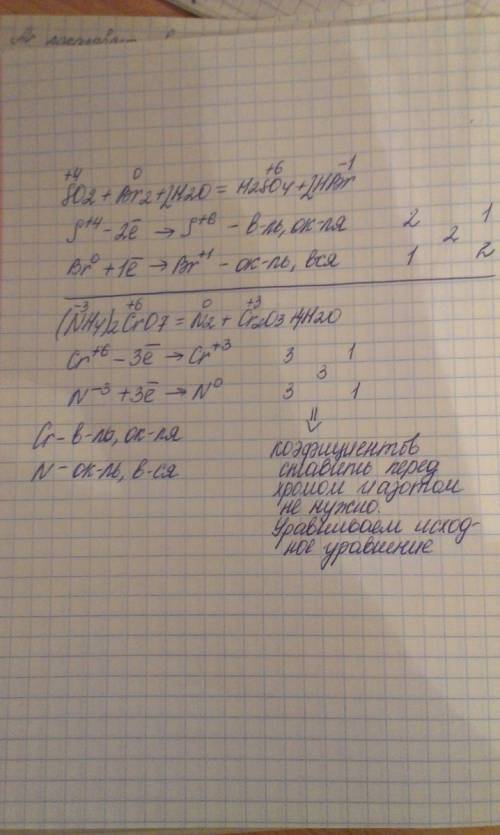 +4 0 +6 -1
SO2 + Br2 + 2H2O = H2SO4 + 2HBr
S+4 - 2e̅ → S+6 - в-ль, ок-ля 2 1
2
Br0 + 1e̅ → Br+1 - ок-ль, вся 1 2
-3 +6 0 +3
(NH4)2CrO7 = N2 + Cr2O3 + 4H2O
Cr+6 - 3e̅ → Cr+3 3 1
3
N-3 + 3e̅ → N0 3 1
⇓
Cr - в-ль, ок-ля
N - ок-ль, в-ся
коэфициентов
ставить перед
хромом и азотом
не нужно.
Уравниваем исход-
ное уравнение